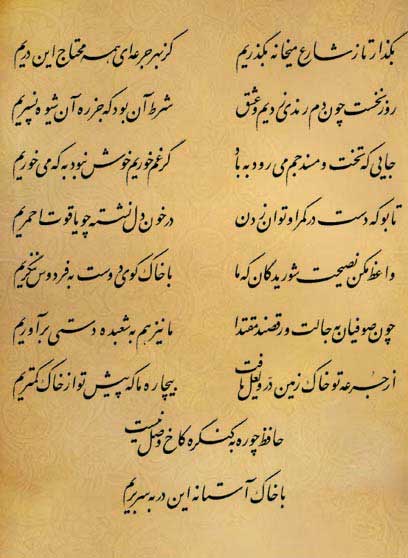 بگذار تا ز شارع میخانه بگذریم کز بهر جرعه‌ای همه محتاج این دریم
روز نخست چون دم رندی زدیم و عشق شرط آن بود که جز ره آن شیوه نسپریم
جایی که تخت و مسند جم می‌رود به باد گر غم خوریم خوش نبود به که می‌خوریم
تا بو که دست در کمر او توان زدن در خون دل نشسته چو یاقوت احمریم
واعظ مکن نصیحت شوریدگان که ما با خاک کوی دوست به فردوس ننگریم
چون صوفیان به حالت و رقصند مقتدا ما نیز هم به شعبده دستی برآوریم
از جرعه تو خاک زمین در و لعل یافت بیچاره ما که پیش تو از خاک کمتریم
حافظ چو ره به کنگره کاخ وصل نیست
با خاک آستانه این در به سر بریم